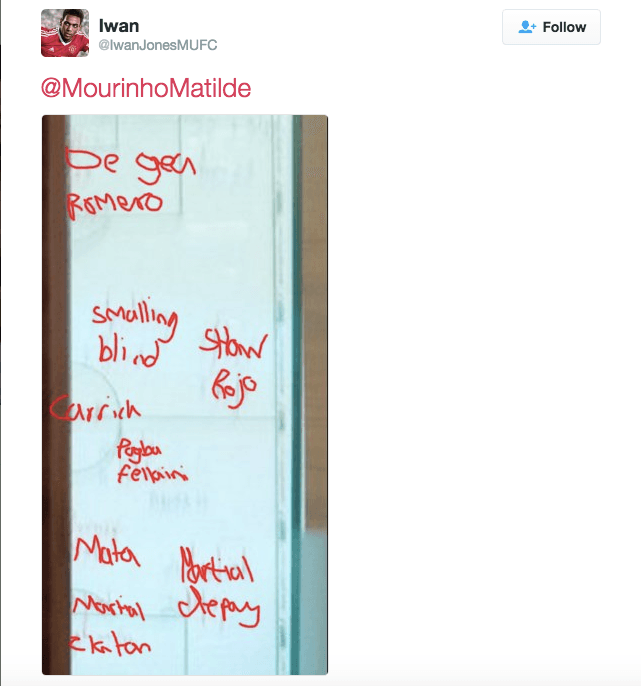 Iwan
@IwanJonesMUFC
Follow
@MourinhoMatilde
De gea
Romero
Smalling
blind
SHaw
Rojo
Carrick
Pogba
fellaini
Mata
Martial
Martial
depay